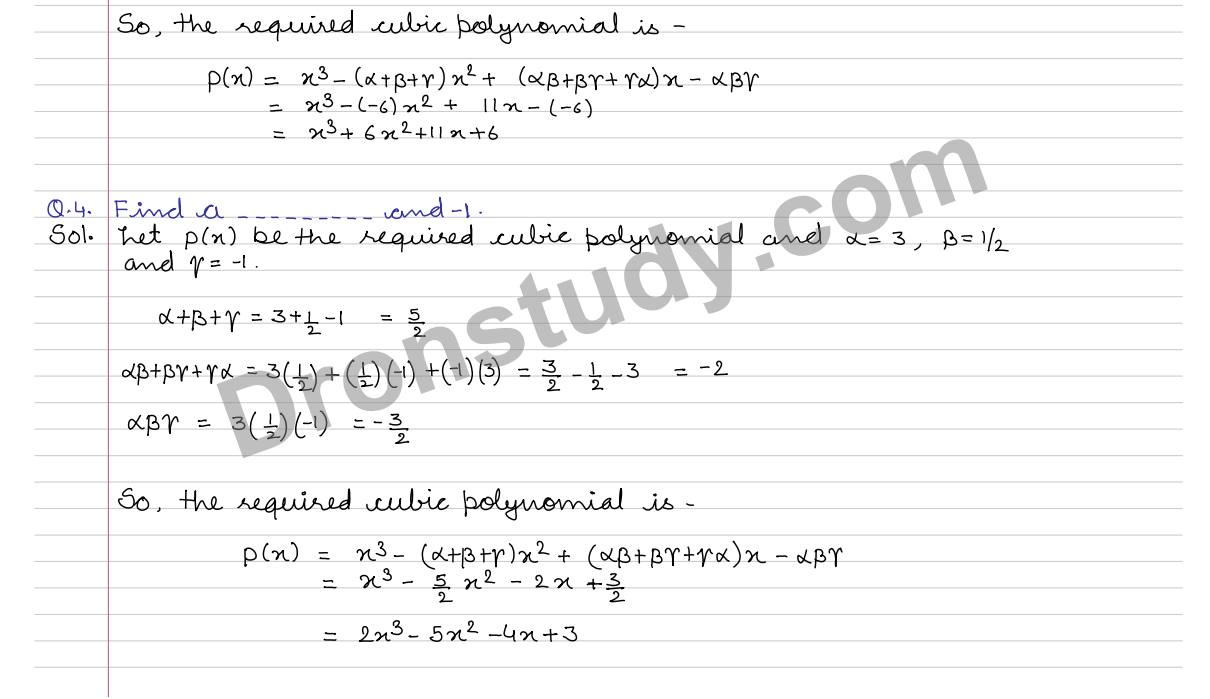 So, the required cubic polynomial is -
p(x) = x³ - (α+β+γ)x² + (αβ+βγ+γα)x - αβγ
= x³ - (-6)x² + 11x - (-6)
= x³ + 6x² + 11x + 6
Q.4. Find a _ _ _ _ _ _ _ _ _ and -1.
Sol. Let p(x) be the required cubic polynomial and α = 3, β = 1/2
and γ = -1.
α+β+γ = 3 + 1/2 - 1 = 5/2
αβ+βγ+γα = 3(1/2) + (1/2)(-1) + (-1)(3) = 3/2 - 1/2 - 3 = -2
αβγ = 3(1/2)(-1) = -3/2
So, the required cubic polynomial is -
p(x) = x³ - (α+β+γ)x² + (αβ+βγ+γα)x - αβγ
= x³ - 5/2 x² - 2x + 3/2
= 2x³ - 5x² - 4x + 3
Dronstudy.com